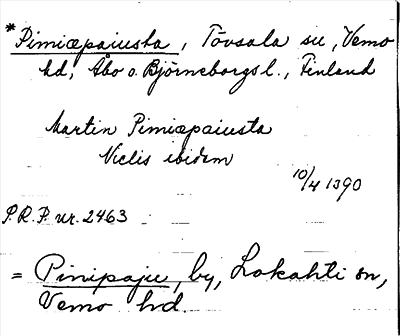 *Pimiæpaiusta, Tövsala sn, Vemo
hd, Åbo o. Björneborgs l., Finland
Martin Pimiæpaiusta
Niclis ibidem
10/4 1390
P.R.P. nr. 2463
= Pinipaju, by, Lokahti sn,
Vemo hd.